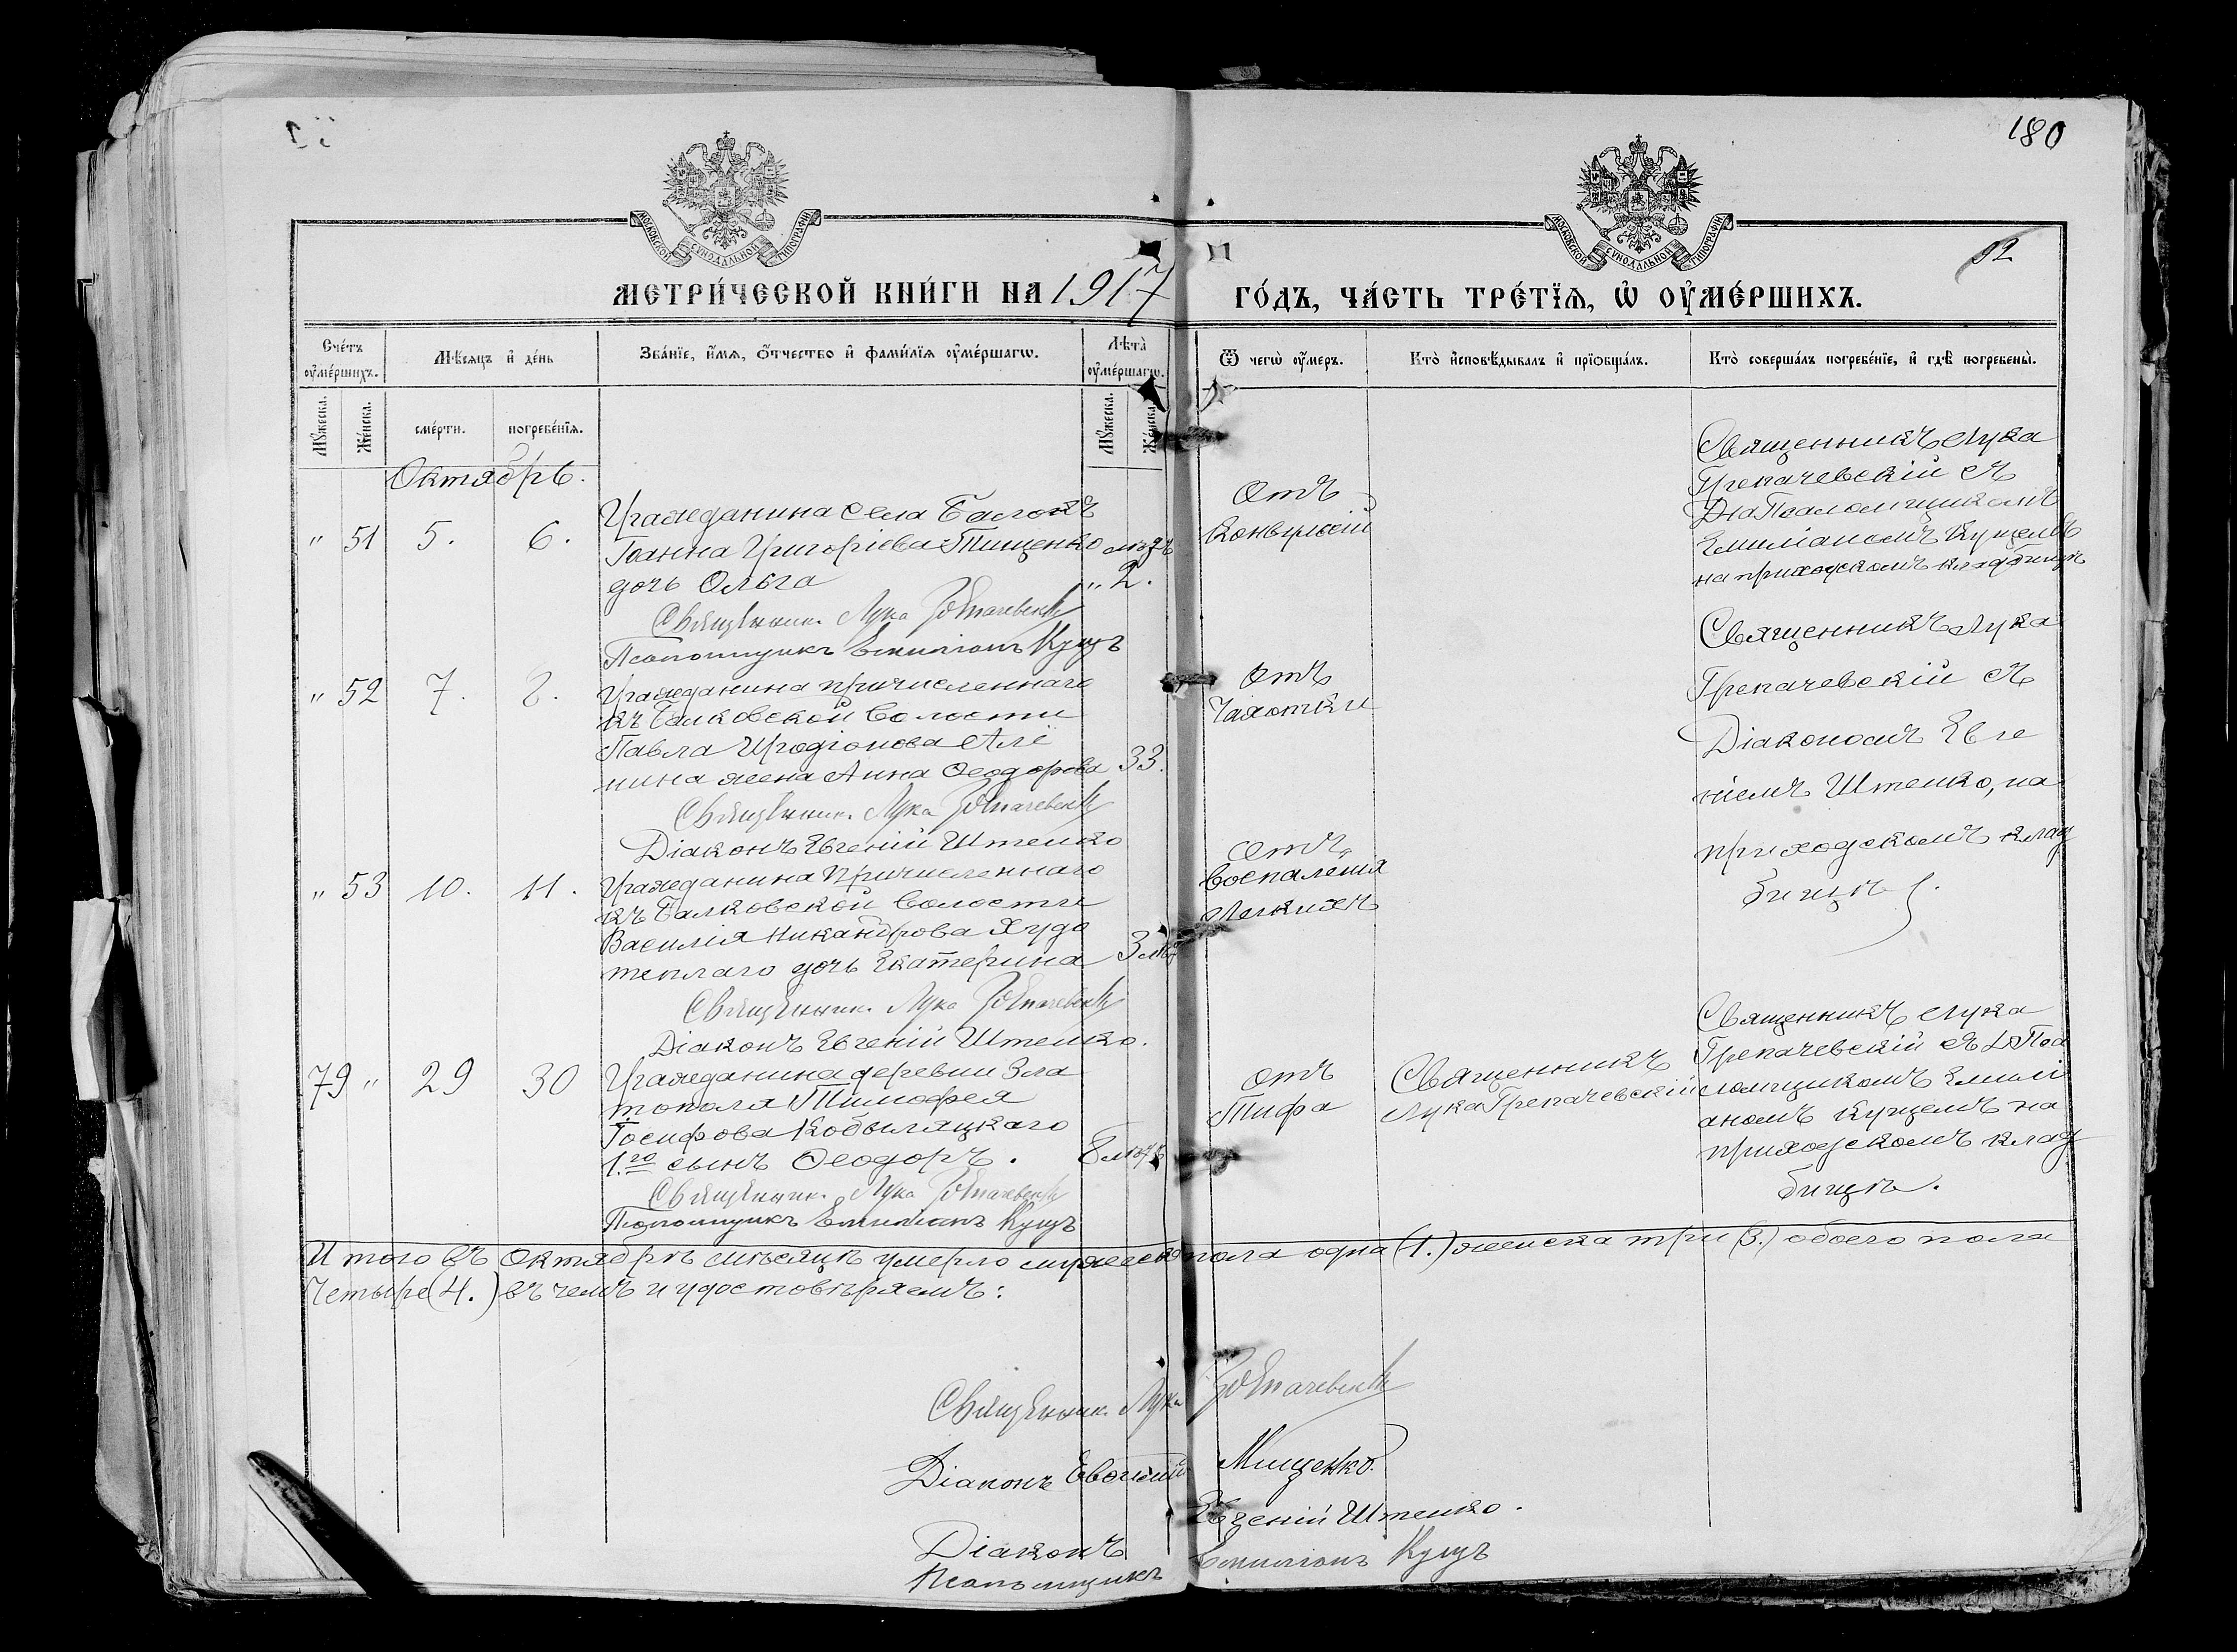 180
МОСКОВСКОЙ СѴНОДАЛЬНОЙ ТИПОГРАФІИ
МОСКОВСКОЙ СѴНОДАЛЬНОЙ ТИПОГРАФІИ
92
МЕТРИ́ЧЕСКОЙ КНИ́ГИ НА 1917
ГО́ДЪ, ЧА́СТЬ ТРЕ́ТЇѦ, Ѡ҆ ОУ҆МЕ́РШИХЪ.
Сче́тъ оу҆ме́ршихъ.
Мѣ́сѧцъ и҆ де́нь
Зва́нїе, и҆́мѧ, ѻ҆́тчество и҆ фами́лїѧ оу҆ме́ршагѡ.
Лѣ́та̀ оу҆ме́ршагѡ.
Ѿ чегѡ̀ оу҆́меръ.
Кто̀ и҆сповѣ́дывалъ и҆ прїѡбща́лъ.
Кто̀ соверша́лъ погребе́нїе, и҆ гдѣ̀ погребены̀.
Мꙋ́жеска.
Же́нска.
сме́рти.
погребе́нїѧ.
Мꙋ́жеска.
Же́нска.
Октябрь.
" 51
5.
6.
Гражданина села Балокъ
Іоанна Григоріева Тищенко
дочь Ольга
мѣс.
" 2.
Отъ
конвульсій
Священникъ Лука
Грепачевскій съ
Псаломщикомъ
Емиліаномъ Кущемъ
на приходскомъ кладбищѣ
Священник Лука Грепачевскій
Псаломщикъ Емиліанъ Кущъ
" 52
7.
8.
Гражданина причисленнаго
къ Балковской волости
Павла Иродіонова Алё
нина жена Анна Ѳеодорова
33.
Отъ
Чахотки
Священникъ Лука
Грепачевскій съ
Діакономъ Евге
ніемъ Штенко, на
приходскомъ клад
бищѣ
Священник Лука Грепачевскій
Діаконъ Евгеній Штенко
" 53
10.
11.
Гражданина причисленнаго
къ Балковской волости
Василія Никандрова Худо
теплаго дочь Екатерина
3 мѣс
отъ
воспаленія
легкихъ
Священник Лука Грепачевскій
Діаконъ Евгеній Штенко.
79 "
29
30
Гражданина деревни Зла
тополя Тимофея
Іосифова Кобыляцкаго
1.го сынъ Ѳеодоръ.
8
отъ
Тифа
Священникъ
Лука Грепачевскій
Священникъ Лука
Грепачевскій съ Пса
ломщикомъ Емилі
аномъ Кущемъ на
приходскомъ клад
бищѣ.
Священник Лука Грепачевскій
Псаломщикъ Емиліанъ Кущъ
Итого въ Октябрѣ мѣсяцѣ умерло мужеска пола одна (1.) женска три (3.) обоего пола
Четыре (4.) въ чемъ и удостовѣряемъ:
Священник Лука Грепачевскій
Діаконъ Мищенко.
Діаконъ Евгеній Штенко.
Псаломщикъ Емиліанъ Кущъ